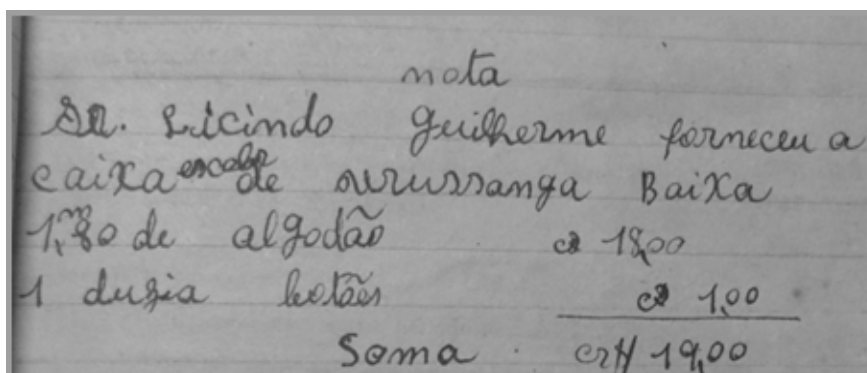 nota
Sr. Licindo Guilherme forneceu a
caixa escolar de urussanga Baixa
1,m80 de algodão cr$ 18,00
1 duzia botões cr$ 1,00
Soma cr$ 19,00